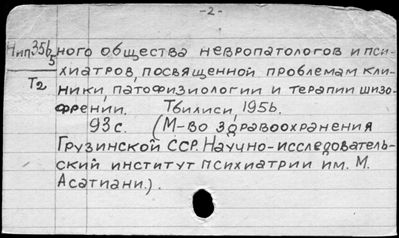 -2-
Чип356/5 ного общества невропатологов и пси-
Т2 хиатров, посвященной проблемам кли-
ники, патофизиологии и терапии шизо-
френии. Тбилиси, 1956.
93с. (М-во здравоохранения
Грузинской ССР. Научно-исследователь-
ский институт психиатрии им. М.
Асатиани.).